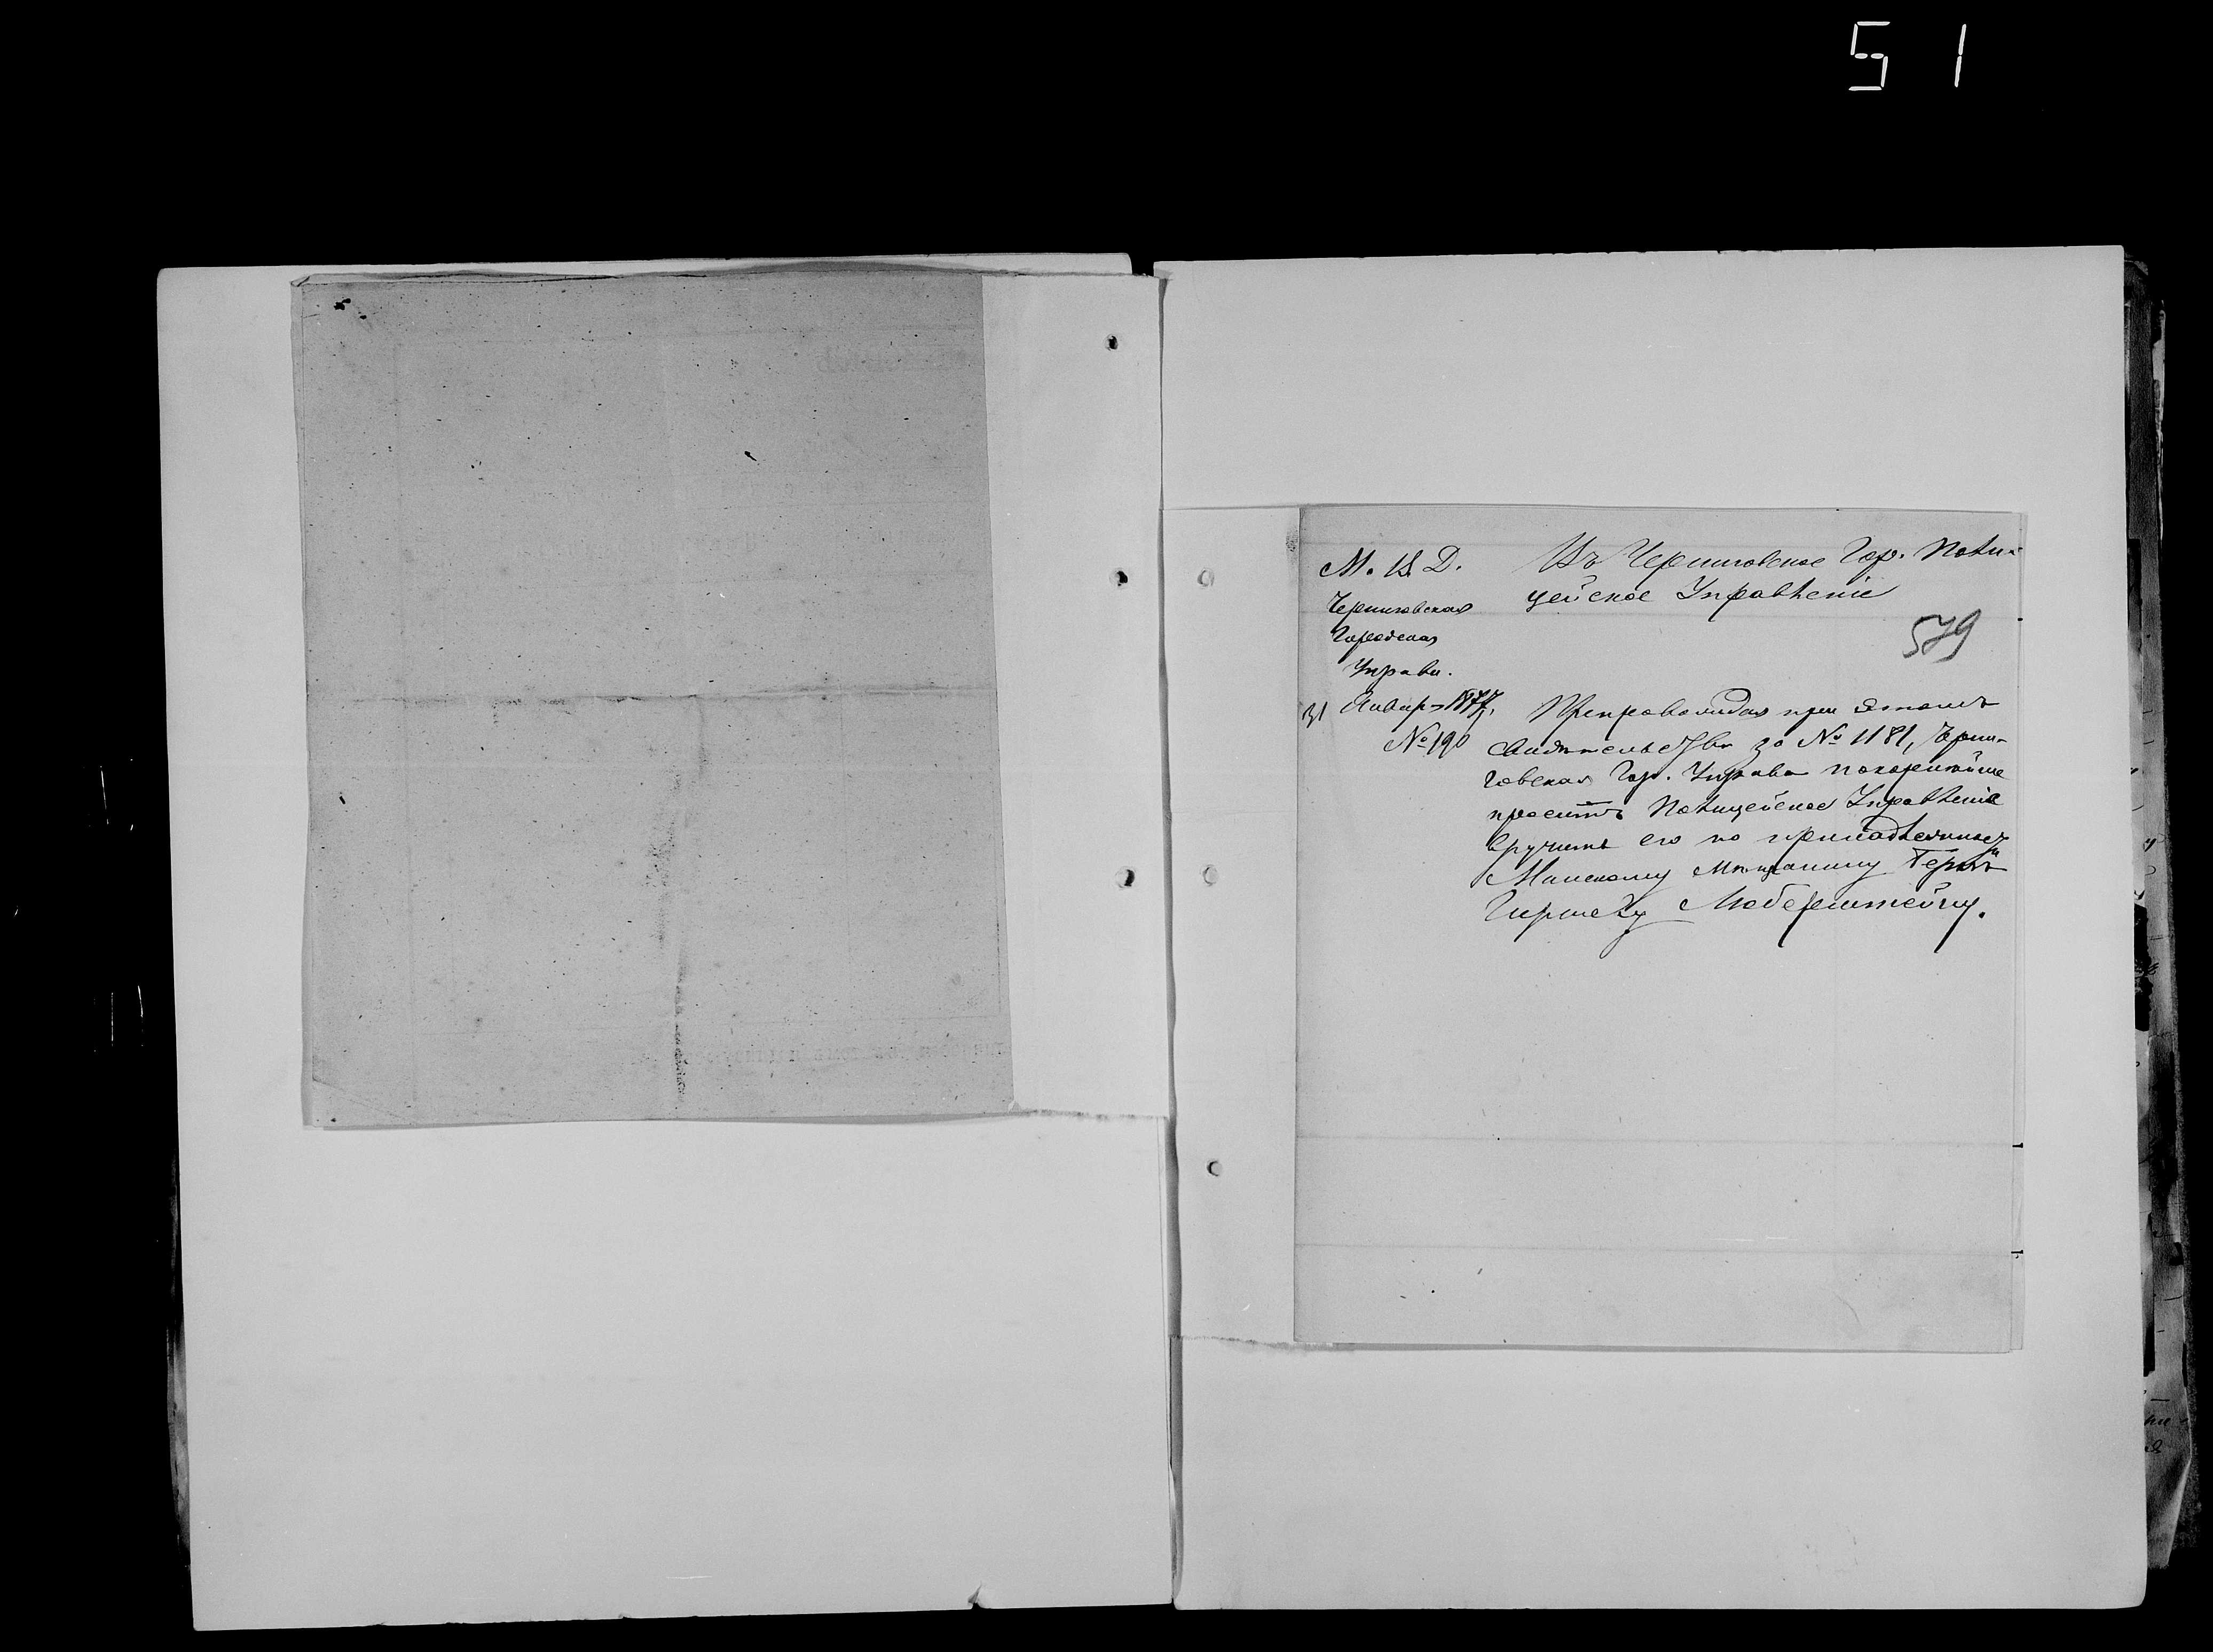 51
М. В. Д.
Черниговская
Городская
Управа.
31 Январ. 1877.
№ 190
Въ Черниговское Гор. Поли-
цейское Управленіе
579
Препровождая при этомъ
свидѣтельство за № 1181, Черни-
говская Гор. Управа покорнѣйше
проситъ Полицейское Управленіе
вручить его по принадлежности
Минскому мѣщанину
Гиршеву